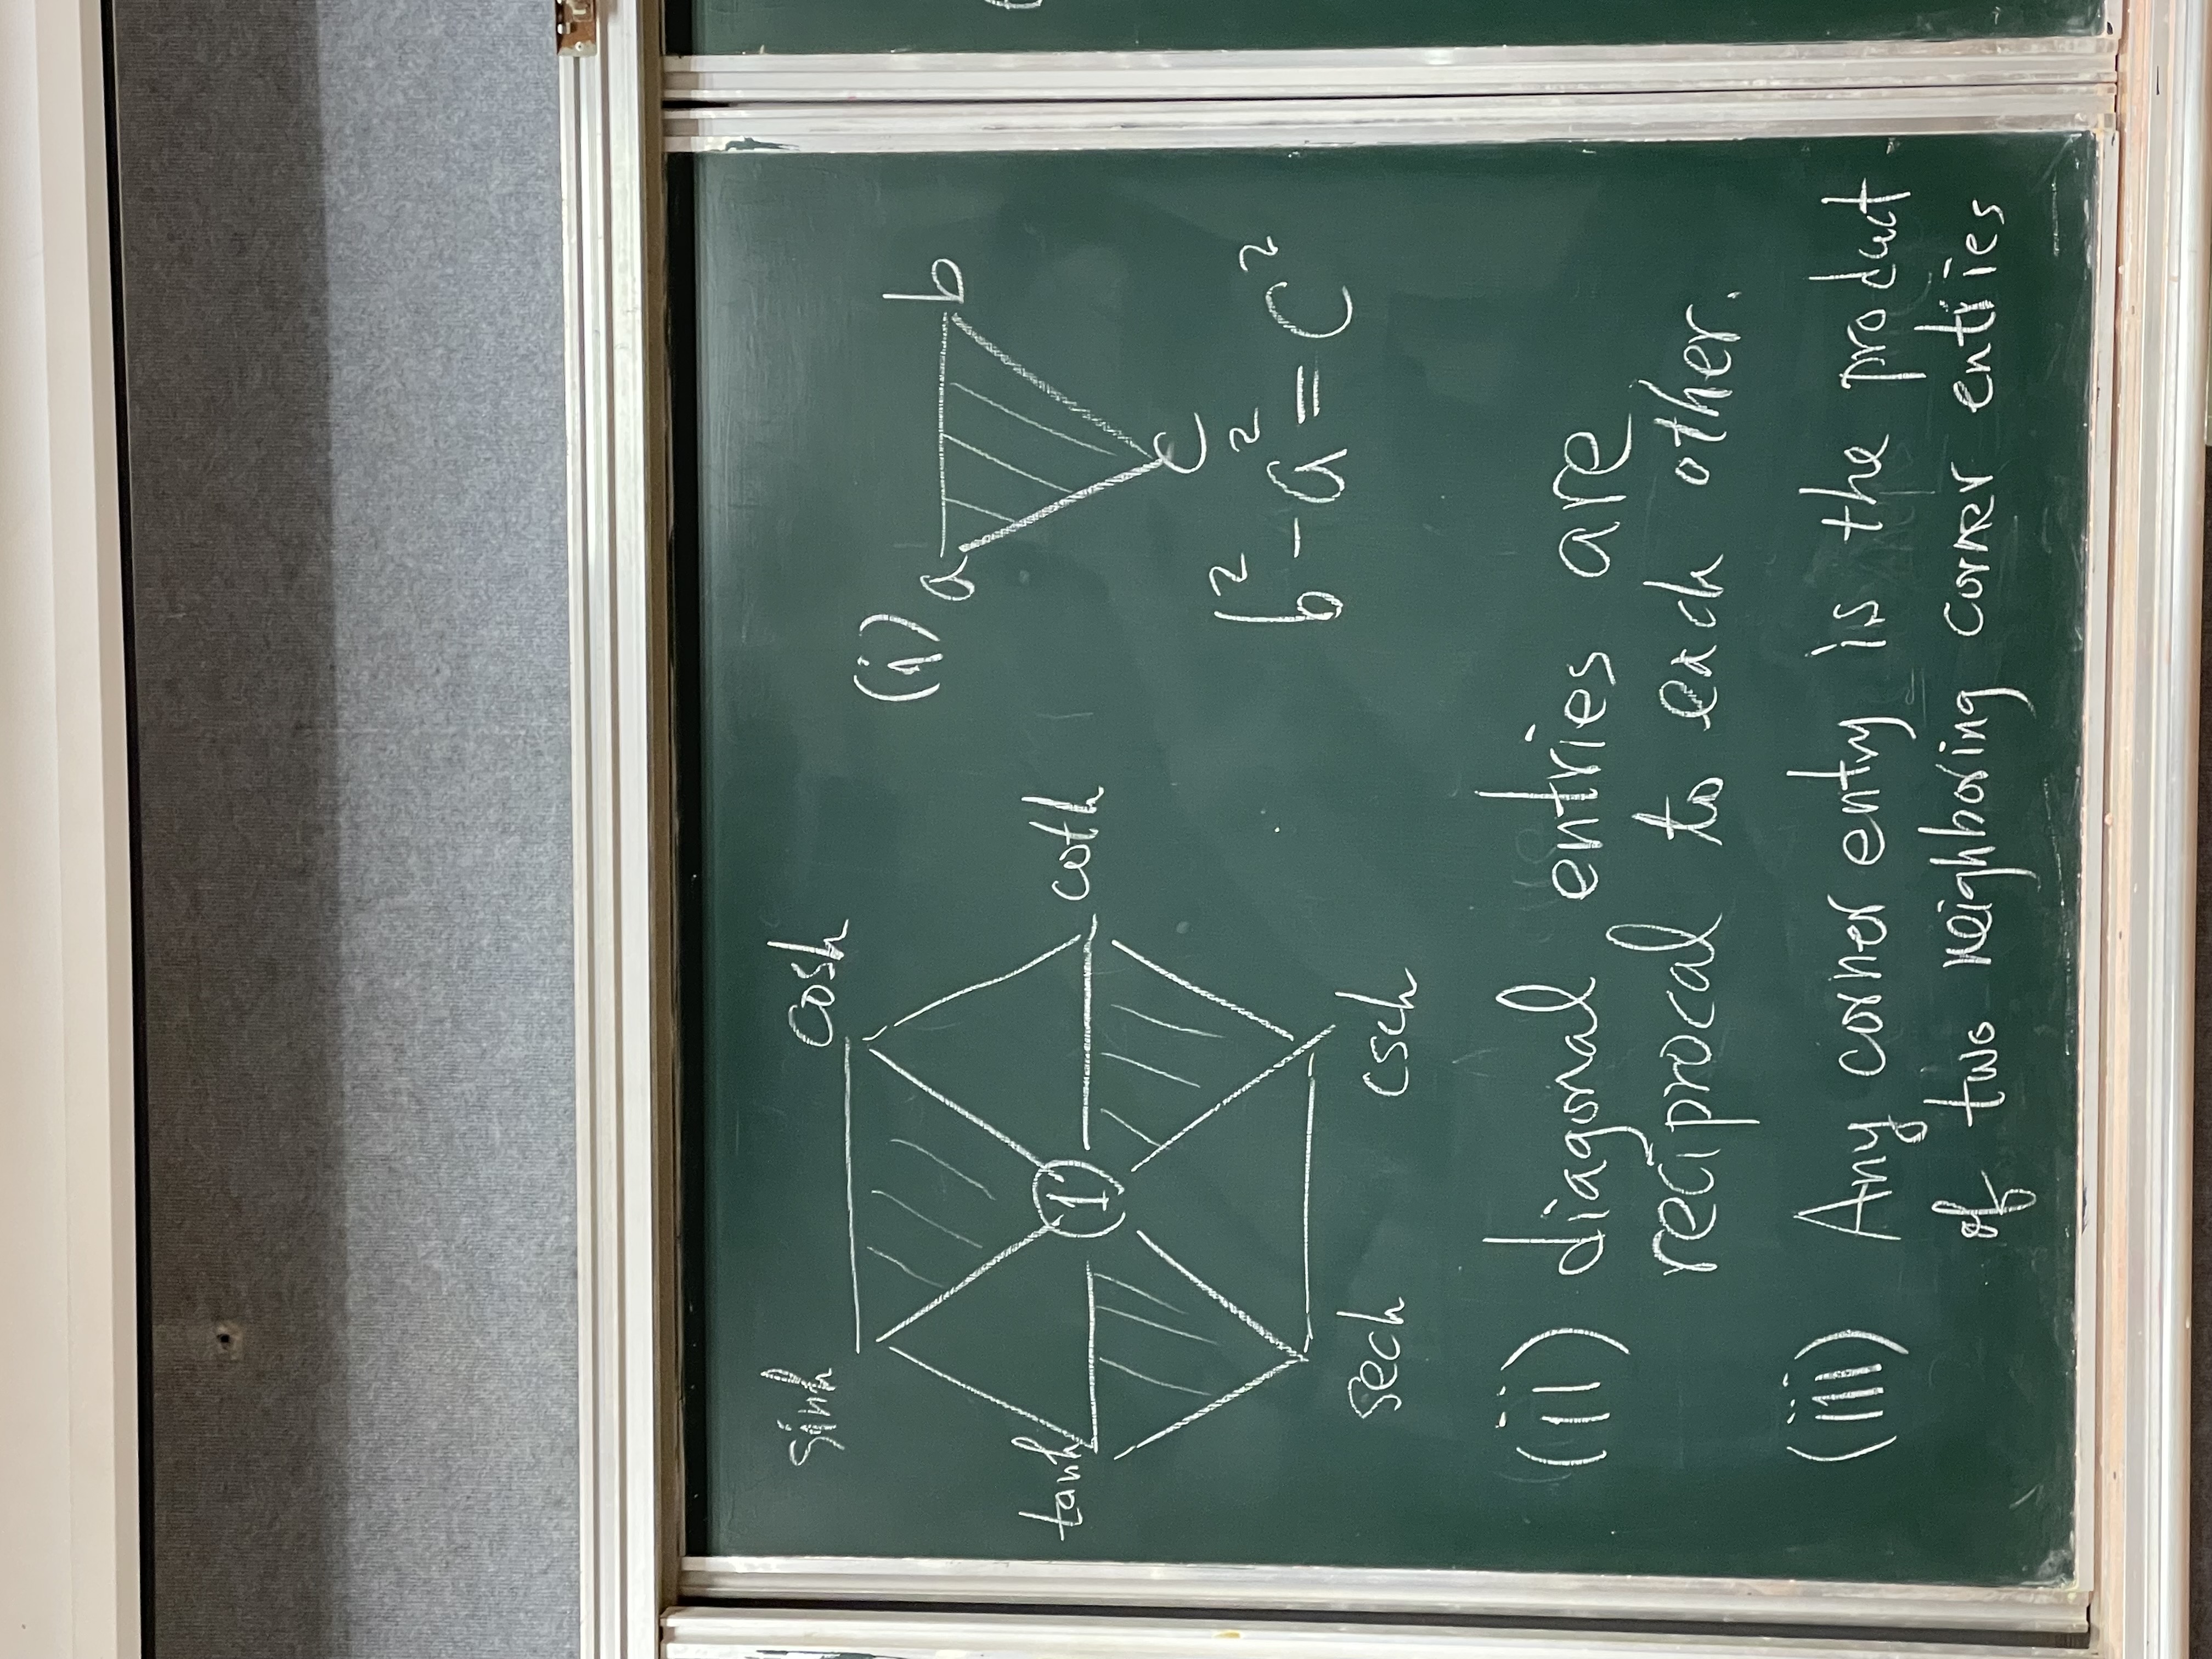 sinh cosh (i) a b
tanh 1 coth c
sech csch b² - a² = c²
(ii) diagonal entries are
reciprocal to each other.
(iii) Any corner enty is the product
of two neighboring corner entries